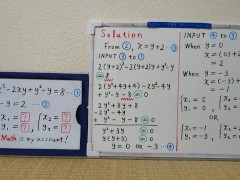 x²-2xy+y²-y=8 …①
-y=2 …②
{x₁=?
y₁=?, {x₂=?
y₂=?
Math is my account!
Solution
From ②, x=y+2 …③
INPUT ③ to ①
2(y+2)²-2(y+2)y+y²-y
=8
2(y²+4y+4)-2y²-4y
+y²-y-8=0
2y²+8y+8
-2y²-4y
+y²-y-8=0
y²+3y=0
y(y+3)=0
y=0 or -3 …④
INPUT ④ to ③
When y=0
x=(0)+2
=2
When y=-3
x=(-3)
=-1
{x₁=2
y₁=0, {x₂
y₂
OR
{x₁=-1
y₁=-3, {x